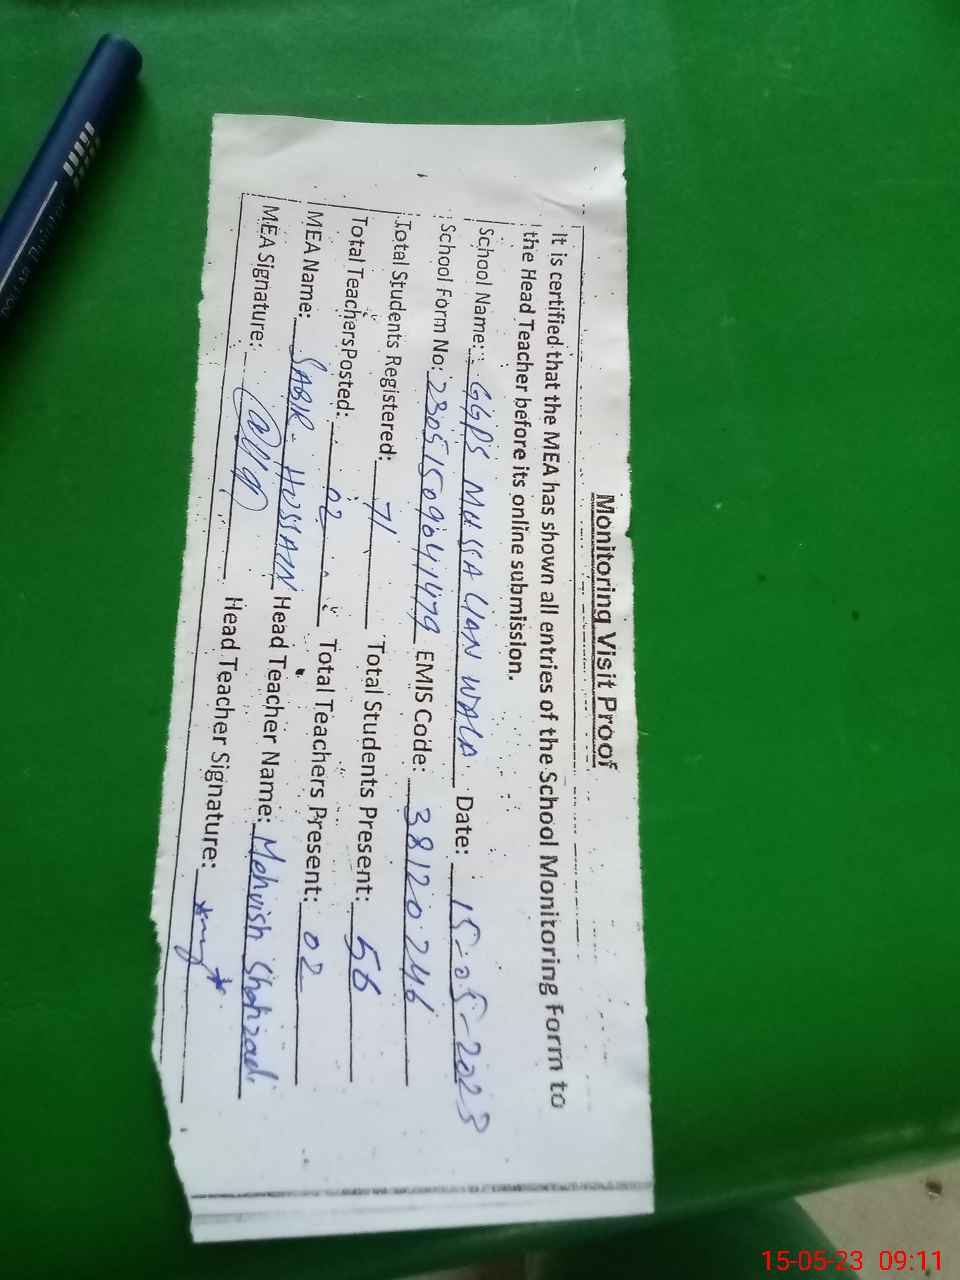 Monitoring Visit Proof
It is certified that the MEA has shown all entries of the School Monitoring Form to
the Head Teacher before its online submission.
School Name: GGPS MUSSALIAN WALA Date: 15-05-2023
School Form No: 2305150964 1479 EMIS Code: 38120246
Total Students Registered: 71 Total Students Present: 56
Total Teachers Posted: 02 Total Teachers Present: 02
MEA Name: SABIR HUSSAIN Head Teacher Name: Mehvish Shahzadi
MEA Signature: Head Teacher Signature:
15-05-23 09:11